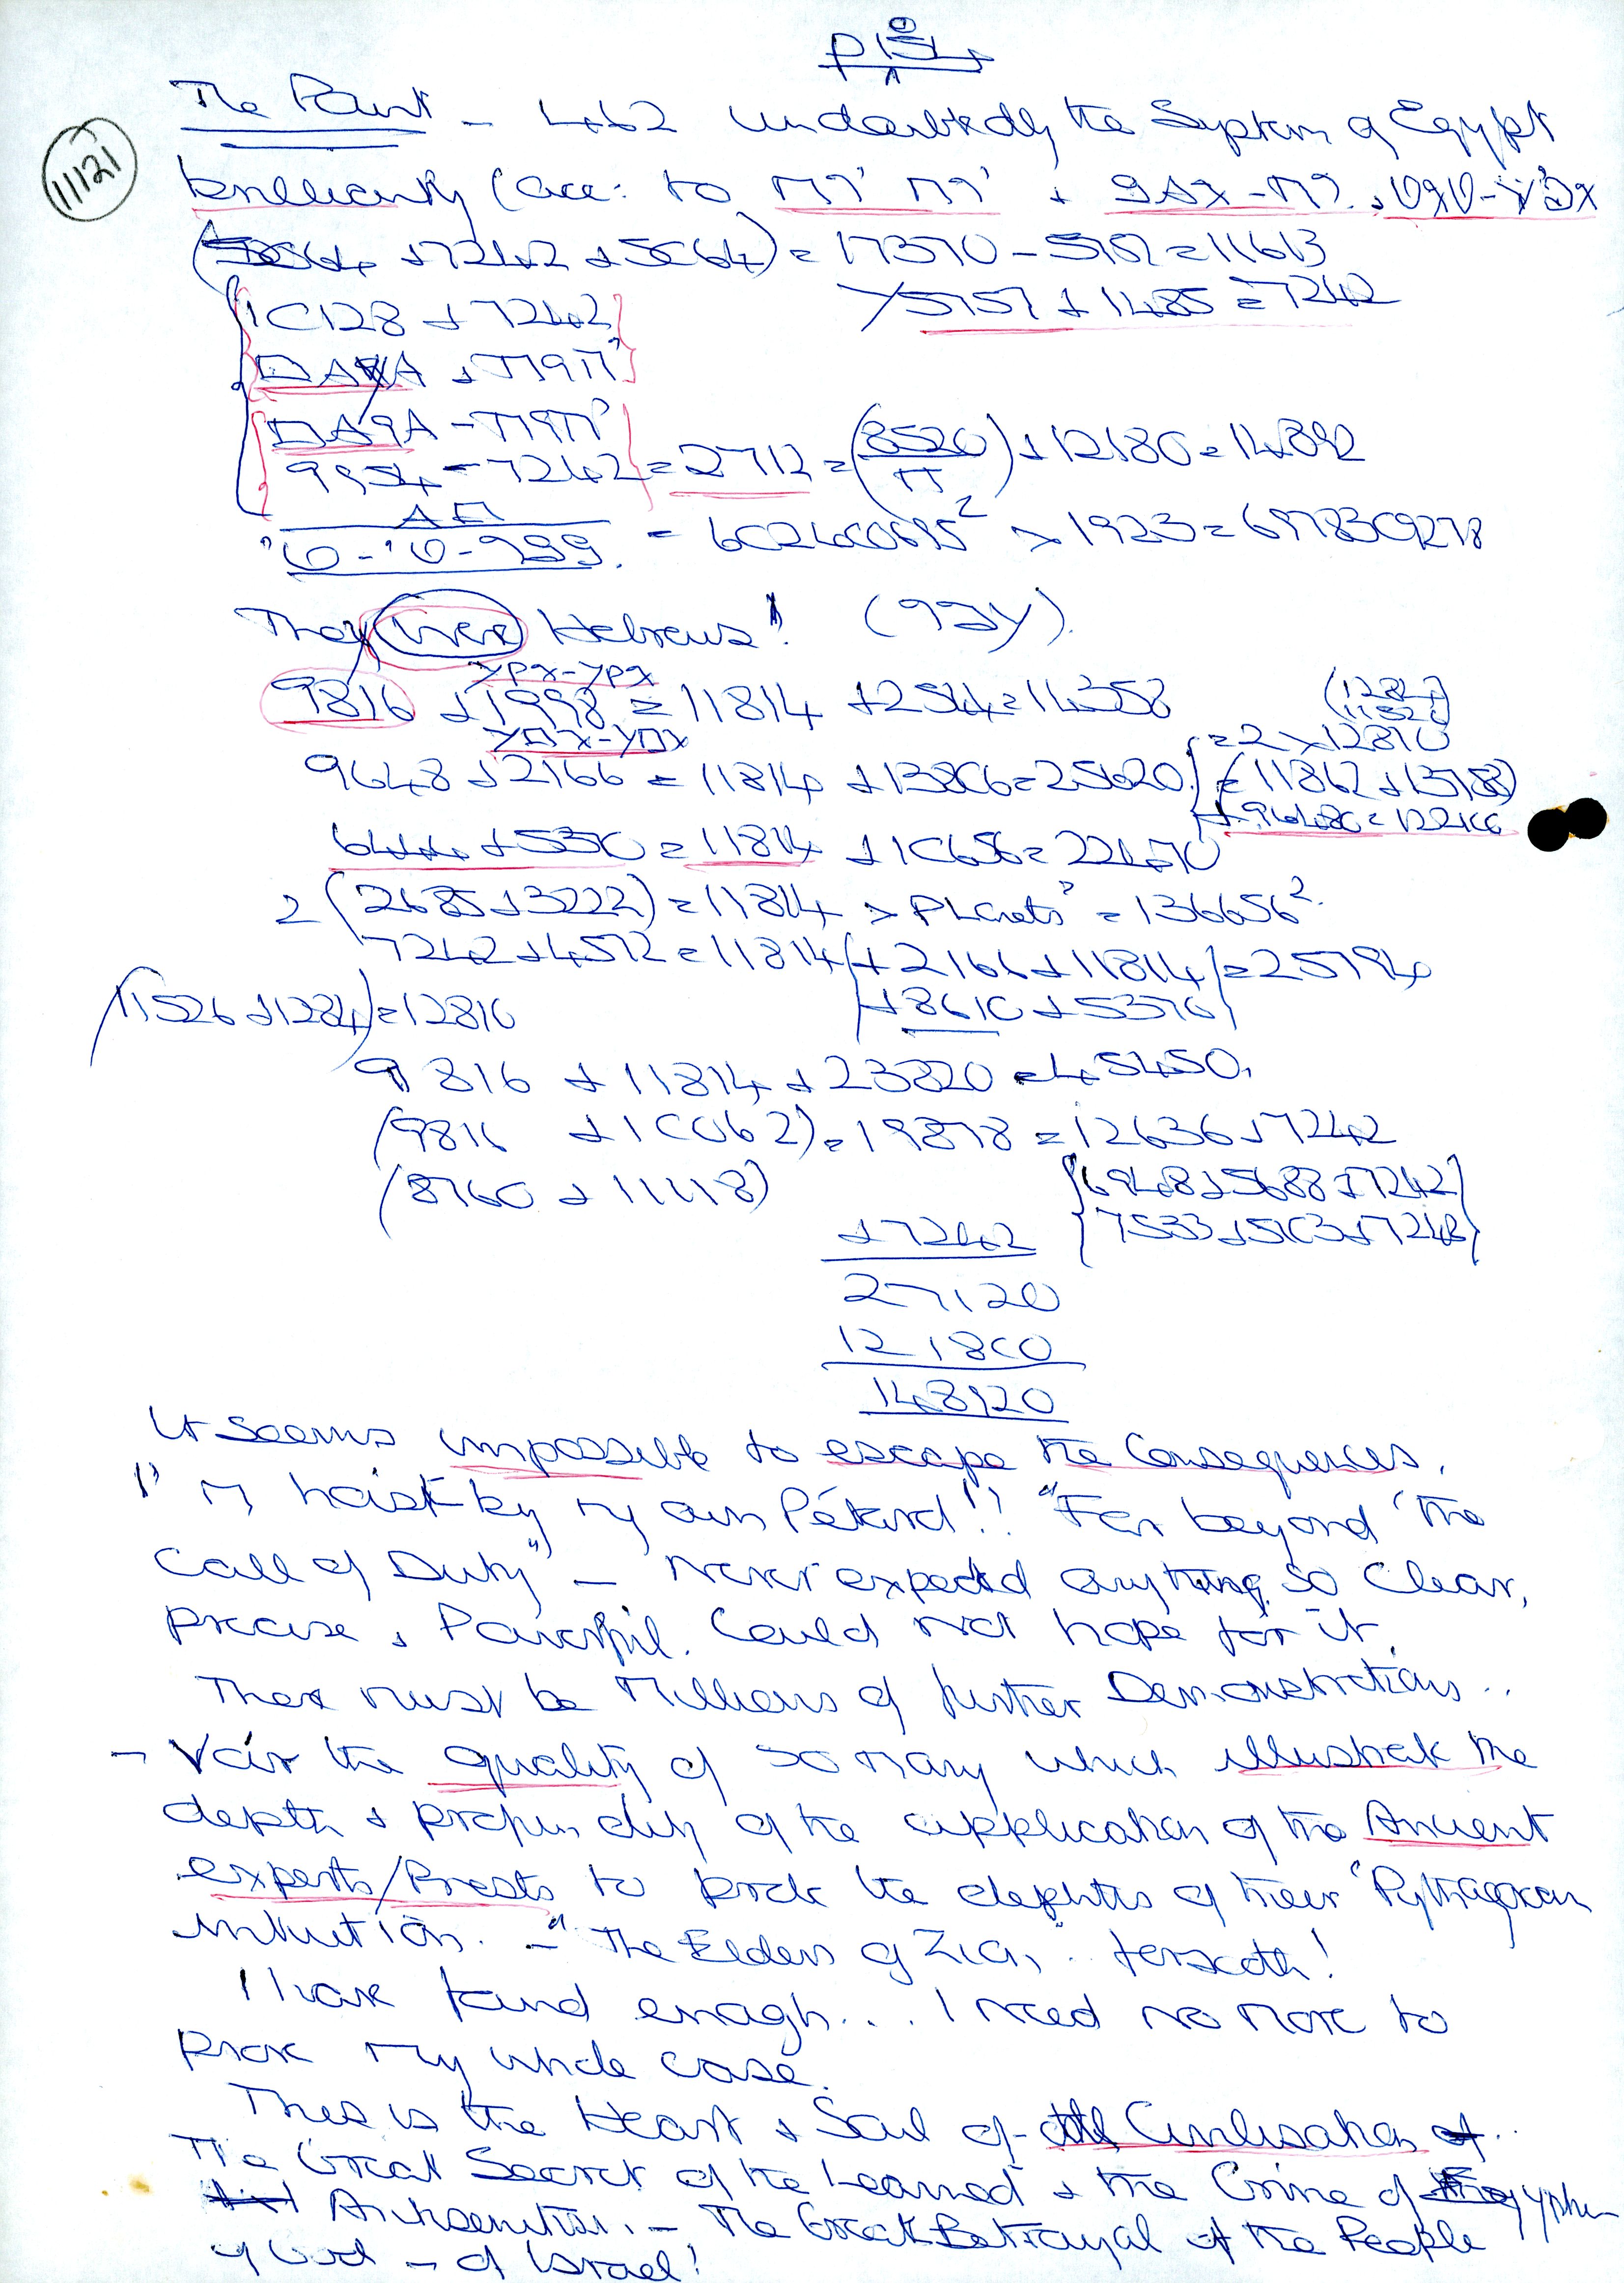 The Point - 462 undoubtedly the System of Egypt
11121
brilliantly (acc: to
(5064 + 7242 + 5064) = 17370 - 5757 = 11613
5757 + 1485 = 7242
10128 + 7242
9954 - 7242 = 2712 = (8520/π) + 12180 = 14892
× 1923 =
They were Hebrews!
9816 + 1998 = 11814 + 2544 = 14358
9648 + 2166 = 11814 + 13806 = 25620
= 2 × 12810
(11862 + 13758)
6444 + 5370 = 11814 + 10656 = 22470
2 (2685 + 3222) = 11814 > Planets = 136656².
7242 + 4572 = 11814 + 2166 + 11814 = 25794
+ 8610 + 5370
(11526 + 1284) = 12810
9816 + 11814 + 23820 = 45450.
(9816 + 10062) = 19878 = 12636 + 7242
(8760 + 11118)
6948 + 5688 + 7242
7533 + 5103 + 7242
+ 7242
27120
121800
148920
It seems impossible to escape the Consequences.
I'm hoist by my own Pétard!! "Far beyond the
Call of Duty" - Never expected anything so Clear,
precise & Powerful. Could not hope for it.
There must be Millions of further Demonstrations..
- Voir the quality of so many which illustrate the
depth & profundity of the application of the Ancient
experts/Priests to probe the depths of their 'Pythagorean
intuition. - "The Elders of Zion". forsooth!
I have found enough... I need no more to
prove my whole case.
This is the Heart & Soul of Civilisation
The Great Secret of the Learned & the Crime of
- The Great Betrayal of the People
of God - of Israel!